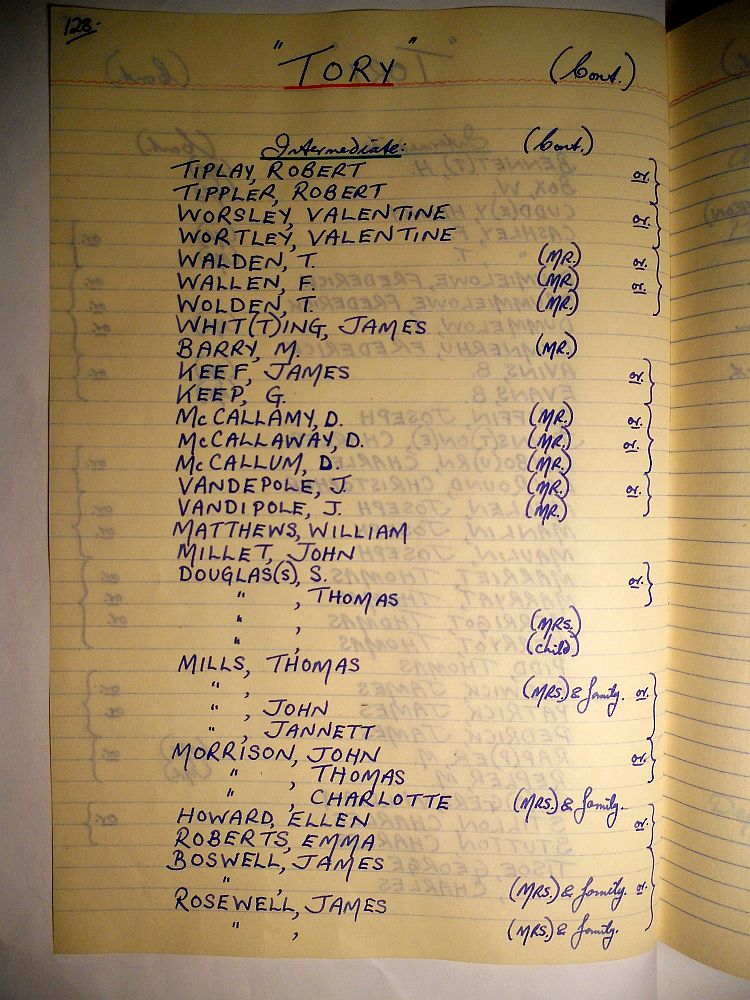 128.
"TORY" (Cont.)
Intermediate: (Cont.)
TIPLAY, ROBERT or.
TIPPLER, ROBERT
WORSLEY, VALENTINE or.
WORTLEY, VALENTINE
WALDEN, T. (MR.) or.
WALLEN, F. (MR.) or.
WOLDEN, T. (MR.)
WHIT(T)ING, JAMES
BARRY, M. (MR.)
KEEF, JAMES or.
KEEP, G.
McCALLAMY, D. (MR.) or.
McCALLAWAY, D. (MR.) or.
McCALLUM, D. (MR.)
VANDEPOLE, J. (MR.) or.
VANDIPOLE, J. (MR.)
MATTHEWS, WILLIAM
MILLET, JOHN
DOUGLAS(S), S. or.
" , THOMAS
" , (MRS.)
" , (child)
MILLS, THOMAS
" , (MRS.) & family. or.
" , JOHN
" , JANNETT
MORRISON, JOHN or.
" , THOMAS
" , CHARLOTTE (MRS.) & family.
HOWARD, ELLEN or.
ROBERTS, EMMA
BOSWELL, JAMES
" , (MRS.) & family. or.
ROSEWELL, JAMES
" , (MRS.) & family.